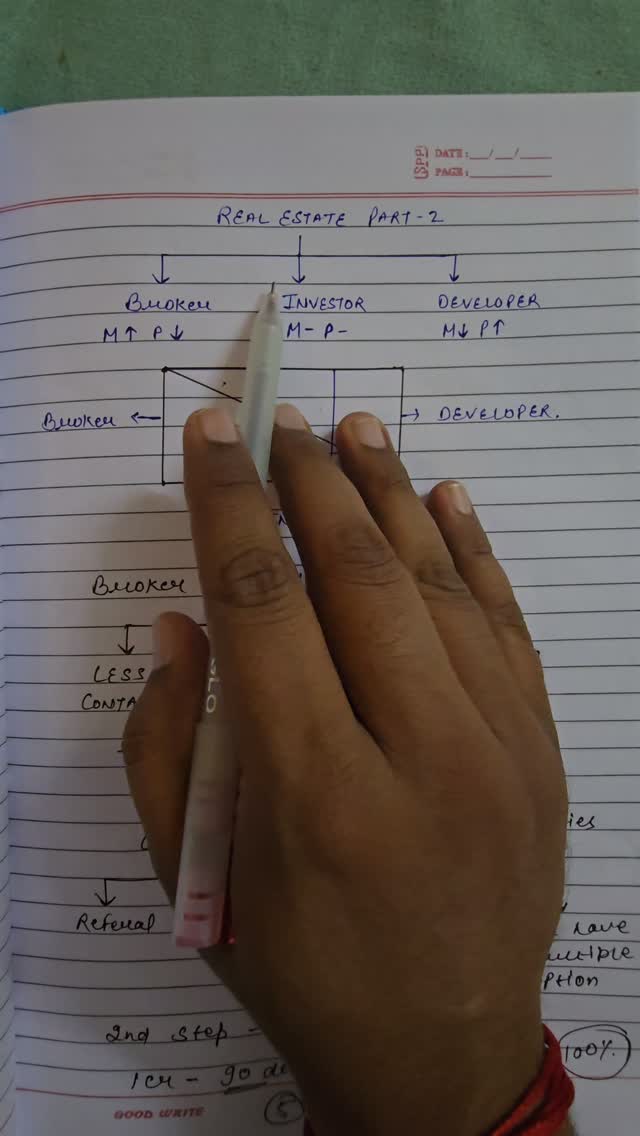 (SPP) DATE: __/__/____
PAGE: ________
REAL ESTATE PART-2
Broker INVESTOR DEVELOPER
M↑ P↓ M- P- M↓ P↑
Broker ← → DEVELOPER.
Broker
LESS
CONTA
ies
Referral
have
multiple
ption
2nd step -
1cr - 90 d
100%
5
GOOD WRITE
SLO